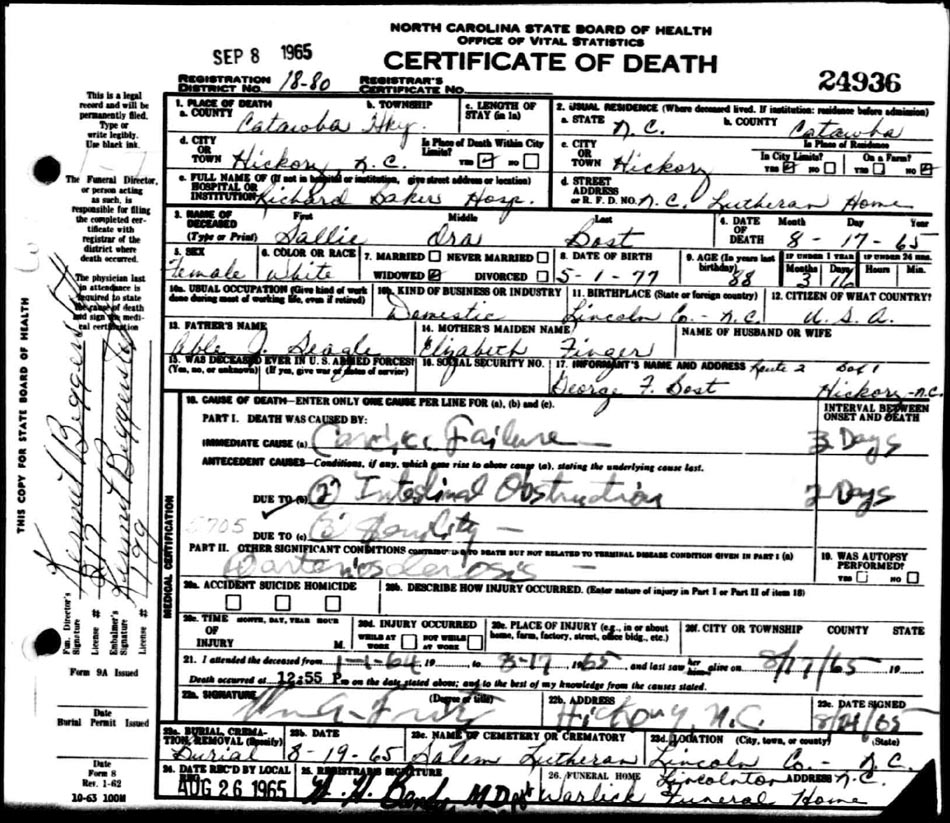 NORTH CAROLINA STATE BOARD OF HEALTH
OFFICE OF VITAL STATISTICS
SEP 8 1965
CERTIFICATE OF DEATH
24936
REGISTRATION DISTRICT NO. 18-80 REGISTRAR'S CERTIFICATE NO.
This is a legal record and will be permanently filed. Type or write legibly. Use black ink.
The Funeral Director, or person acting as such, is responsible for filing the completed certificate with registrar of the district where death occurred.
The physician last in attendance is required to state the cause of death and sign the medical certification
THIS COPY FOR STATE BOARD OF HEALTH
1. PLACE OF DEATH
a. COUNTY Catawba b. TOWNSHIP Hky. c. LENGTH OF STAY (in 1a)
2. USUAL RESIDENCE (Where deceased lived. If institution: residence before admission)
a. STATE N.C. b. COUNTY Catawba
d. CITY OR TOWN Hickory N.C. Is Place of Death Within City Limits? YES NO
c. CITY OR TOWN Hickory Is Place of Residence In City Limits? YES NO On a Farm? YES NO
e. FULL NAME OF HOSPITAL OR INSTITUTION (If not in hospital or institution, give street address or location) Richard Baker Hosp.
d. STREET ADDRESS or R. F. D. NO. N.C. Lutheran Home
3. NAME OF DECEASED (Type or Print) First Sallie Middle Ora Last Bost
4. DATE OF DEATH Month Day Year 8-17-65
5. SEX Female
6. COLOR OR RACE White
7. MARRIED NEVER MARRIED WIDOWED DIVORCED
8. DATE OF BIRTH 5-1-77
9. AGE (In years last birthday) 88 IF UNDER 1 YEAR Months 3 Days 16 IF UNDER 24 HRS. Hours Min.
10a. USUAL OCCUPATION (Give kind of work done during most of working life, even if retired)
10b. KIND OF BUSINESS OR INDUSTRY Domestic
11. BIRTHPLACE (State or foreign country) Lincoln Co.- N.C.
12. CITIZEN OF WHAT COUNTRY? U.S.A.
13. FATHER'S NAME Able J. Seagle
14. MOTHER'S MAIDEN NAME Elizabeth Finger
NAME OF HUSBAND OR WIFE
15. WAS DECEASED EVER IN U. S. ARMED FORCES? (Yes, no, or unknown) (If yes, give war or dates of service)
16. SOCIAL SECURITY NO.
17. INFORMANT'S NAME AND ADDRESS Route 2 Box 1
George F. Bost Hickory-N.C.
18. CAUSE OF DEATH—ENTER ONLY ONE CAUSE PER LINE FOR (a), (b) and (c).
INTERVAL BETWEEN ONSET AND DEATH
PART I. DEATH WAS CAUSED BY:
IMMEDIATE CAUSE (a) Cardiac Failure 3 Days
ANTECEDENT CAUSES—Conditions, if any, which gave rise to above cause (a), stating the underlying cause last.
DUE TO (b) Intestinal Obstruction 2 Days
5705
DUE TO (c) Senility
PART II. OTHER SIGNIFICANT CONDITIONS CONTRIBUTING TO DEATH BUT NOT RELATED TO TERMINAL DISEASE CONDITION GIVEN IN PART I (a)
19. WAS AUTOPSY PERFORMED? YES NO
MEDICAL CERTIFICATION
20a. ACCIDENT SUICIDE HOMICIDE
20b. DESCRIBE HOW INJURY OCCURRED. (Enter nature of injury in Part I or Part II of item 18)
20c. TIME OF INJURY MONTH, DAY, YEAR HOUR M.
20d. INJURY OCCURRED WHILE AT WORK NOT WHILE AT WORK
20e. PLACE OF INJURY (e.g., in or about home, farm, factory, street, office bldg., etc.)
20f. CITY OR TOWNSHIP COUNTY STATE
21. I attended the deceased from 1-1-64 19 to 8-17 1965 and last saw her alive on 8/17/65 19
Death occurred at 12:55 P. m on the date stated above; and to the best of my knowledge from the causes stated.
22a. SIGNATURE (Degree or title)
22b. ADDRESS Hickory, N.C.
22c. DATE SIGNED 8/24/65
23a. BURIAL, CREMATION, REMOVAL (Specify) Burial
23b. DATE 8-19-65
23c. NAME OF CEMETERY OR CREMATORY Salem Lutheran
23d. LOCATION (City, town, or county) (State) Lincoln Co.- N.C.
24. DATE REC'D BY LOCAL REG. AUG 26 1965
25. REGISTRAR'S SIGNATURE
26. FUNERAL HOME ADDRESS Lincolnton N.C.
Warlick Funeral Home
Fun. Director's Signature
License # 217
Embalmer's Signature
License # 199
Form 9A Issued
Date
Burial Permit Issued
Date
Form 8
Rev. 1-62
10-63 100M